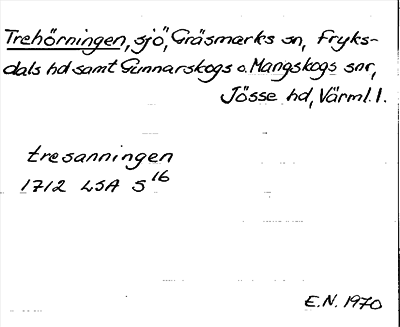 Trehörningen, sjö, Gräsmarks sn, Fryks-
dals hd samt Gunnarskogs o. Mangskogs snr,
Jösse hd, Värml. l.
tresanningen
1712 LSA S 16
E.N. 1970